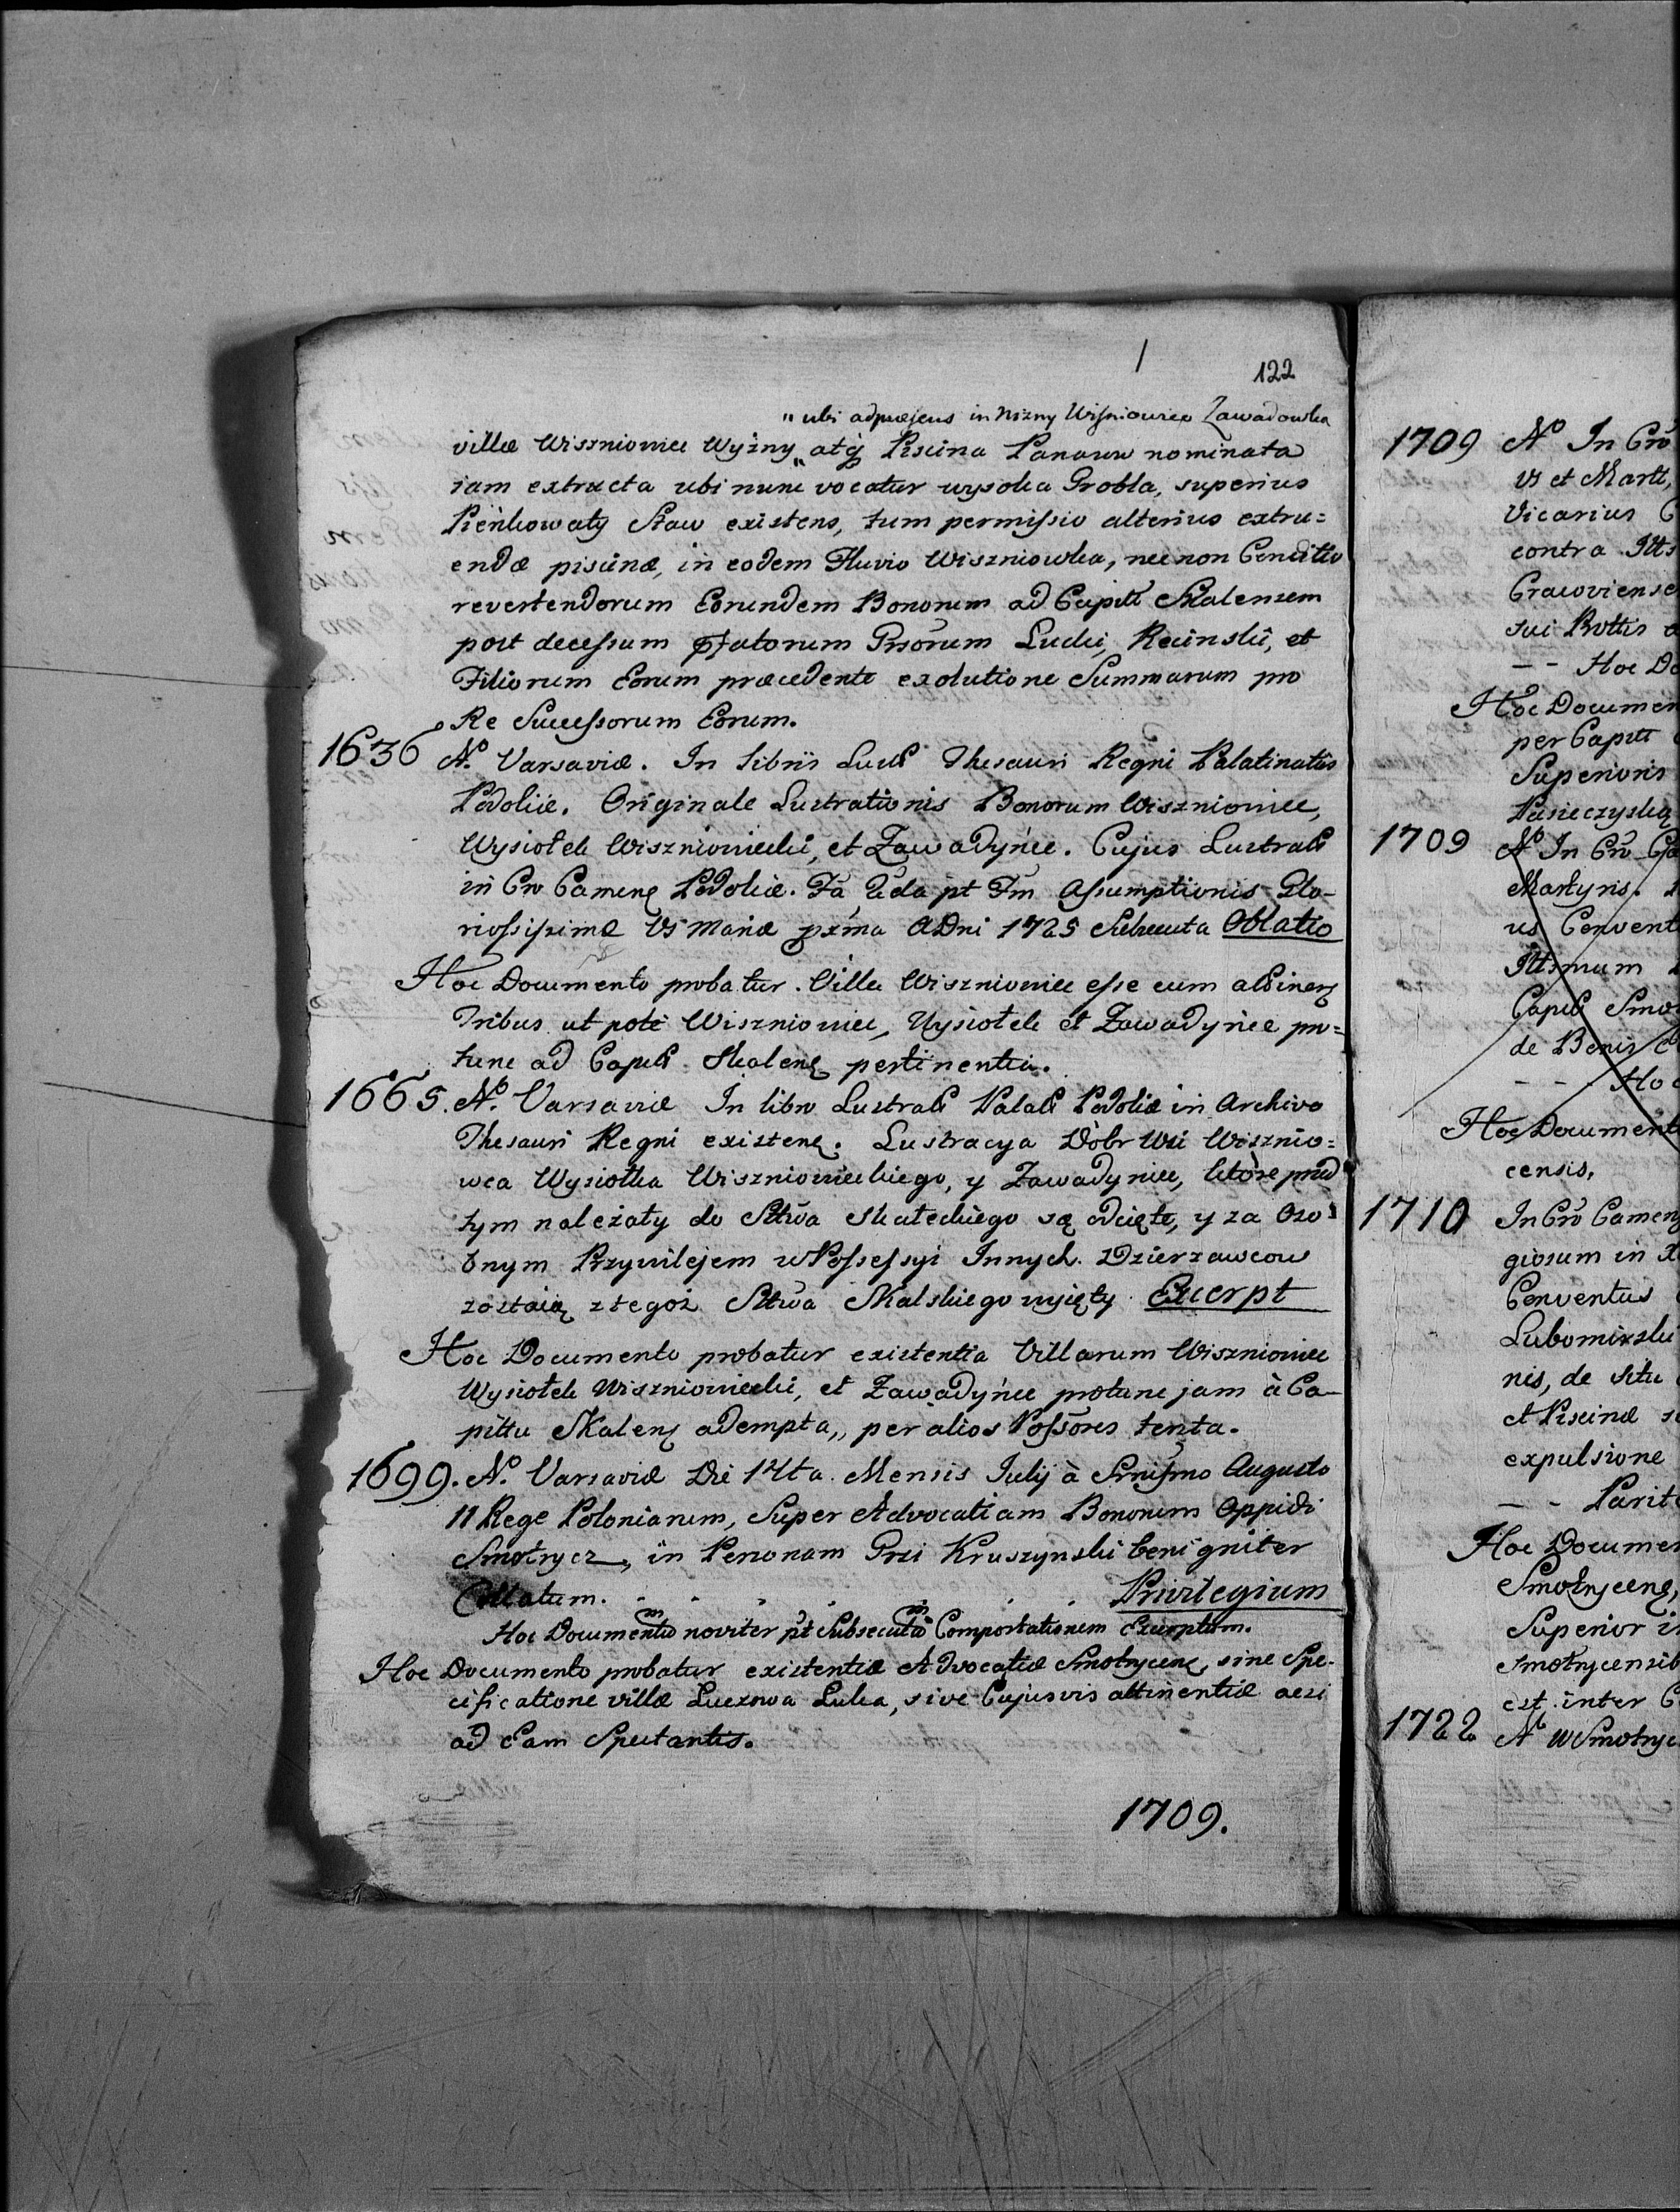 122
„ ubi adpræsens in Nizny Wiſniowiec Zawadowka
villæ Wiszniowiec Wyżny „ atq́ Piscina Panaww nominata
iam extructa ubi nunc vocatur wysoka Grobla, superius
Pieńkowaty Staw existens, tum permiſsio alterius extru=
endæ piscinæ, in eodem Fluvio Wiszniowka, nec non Conditio
revertendorum Eorundem Bonorum ad Capitt Skalensem
post deceſsum Gſsorum Lucki, Recinskii, et
Filiorum Eorum præcedente exolutione Summarum pro
Re Succeſsorum Eorum.
1636 No. Varsaviæ. In libris Thesauri Regni Palatinatûs
Podoliæ. Originale Lustrationis Bonorum Wiszniowiec,
Wysiołek Wiszniowiecki, et Zawadyńce. Cujus
in Cro Podoliæ. Fa pt Fm Aſsumptionis Glo-
rioſsiſsimæ Vs Mariæ ADni 1725 Oblatio
Hoc Documento probatur. Villa Wiszniowiec eſse cum
Tribus ut pote Wiszniowiec, Wysiołek et Zawadyńce pro=
tunc ad pertinentia.
1665. No. Varsaviæ In libro Podoliæ in Archivo
Thesauri Regni Lustracya Dóbr Wsi Wisznio=
wca Wysiołka Wiszniowieckiego, y Zawadyniec, które przed
tym należały do Sttwa Skateckiego są odcięte, y za Oso=
bnym Przywilejem w Poſseſsyi Innych Dzierzawcow
zostaią z tegoż Sttwa Skalskiego wyięty Excerpt
Hoc Documento probatur existentia Villarum Wiszniowiec
Wysiołek Wiszniowiecki, et Zawadyńce protunc jam à Ca-
pittu Skalen adempta „ per alios Poſsores tenta.
1699. No. Varsaviæ Die 14ta Mensis Julij à Srniſmo Augusto
II Rege Poloniarum, Super Advocatiam Bonorum Oppidi
Smotrycz, in Personam Grsi Kruszynski benigniter
Collatum. . . . . . . Privilegium
Hoc Documentum noviter pt Subsecutam Comportationem Excerptum.
Hoc Documento probatur existentiæ Advocatiæ Smotrycen, sine Spe-
cificatione villæ Luczowa Luka, sive Cujusvis attinentiæ acsi
ad Eam Spectantis.
1709.
1709 No In Cro
Vs et Mart,
Vicarius C
contra Itts
Cracoviense
sui Rottis
- - Hoc Do
Hoc Documen
per Capitt
Superioris
Pasieczyską
1709 No In Cro
Martyris.
us Convent
Ittsmum
Smo
de Bonis
- - Hoc
Hoc Document
censis,
1710 In Cro Camen
giosum in
Conventus
Lubomirski
nis, de Situ
et Piscinæ
expulsione
- - Parit
Hoc Documen
Smotrycene,
Superior i
Smotrycensib
est inter C
1722 No W Smotryc